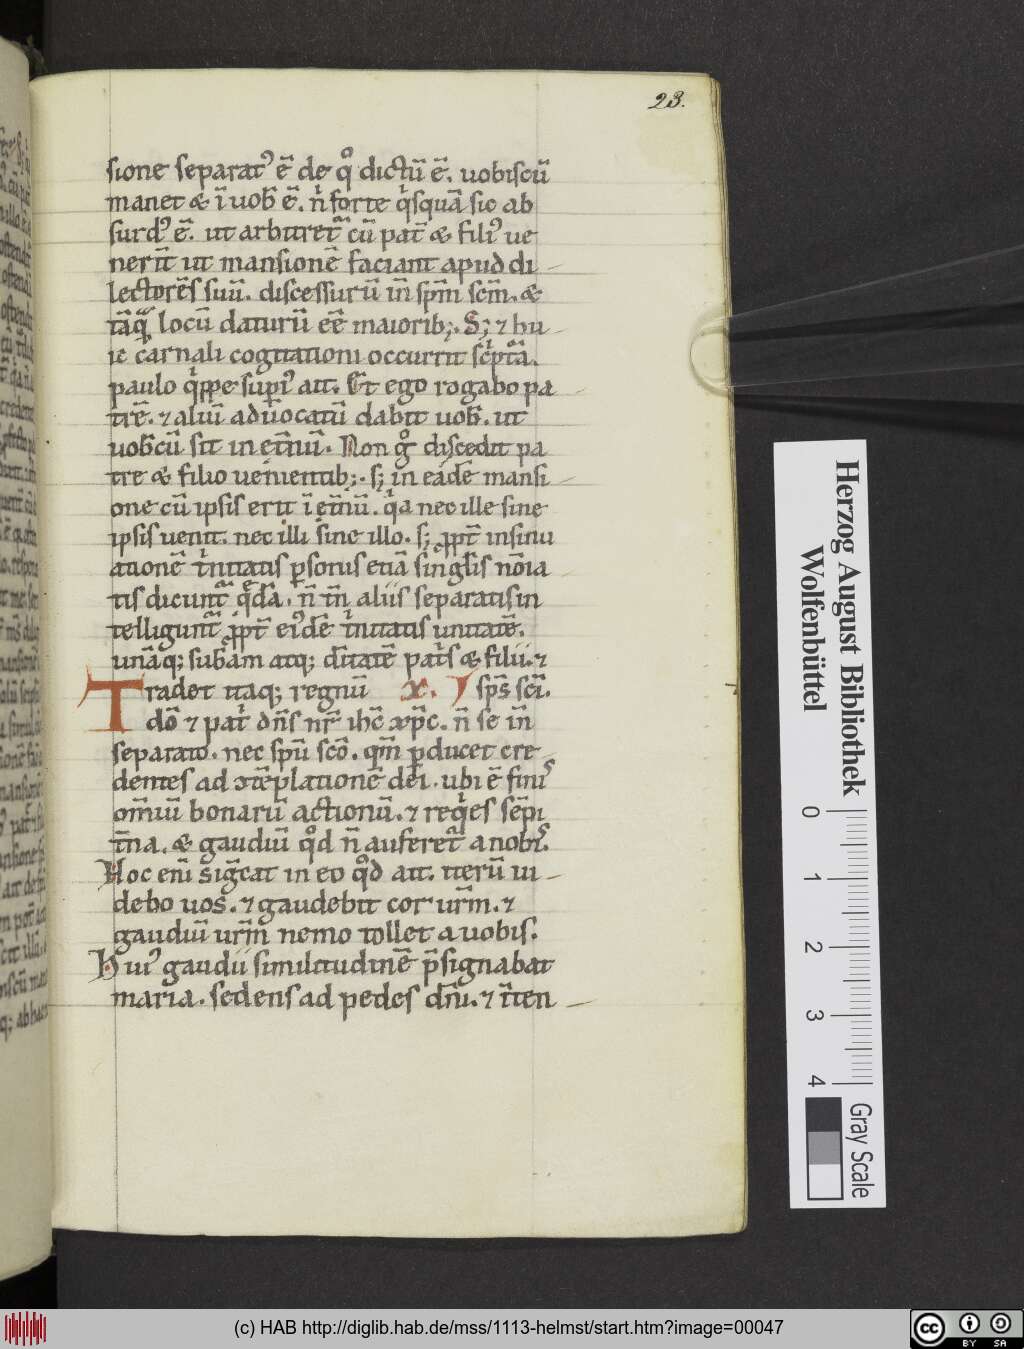 23.
sione separat᾽ ē de q̊ dictū ē. uobiscū
manet & ī uob̄ ē. n̄ forte qͥsquā sic ab
surd᾽ ē. ut arbitretᷓ cū pat̄ & fili᾽ ue
nerīt ut mansionē faciant apud di
lectorēs suū. discessurū īn sp̄m scm̄. &
tāqᷓ locū daturū eē maiorib;. S; ⁊ hu
ic carnali cogitationi occurrit scͥptᷓa.
paulo qͥppe superi᾽ ait. Et ego rogabo pa
trē. ⁊ aliū aduocatū dabit uob̄. ut
uob̄cū sit in et̄nū. Non g̊ discedit pa
tre & filio uenientib;. s; in eadē mansi
one cū ipsis erit ī et̄nū. qͥa nec ille sine
ipsis uenit. nec illi sine illo. s; ꝓpt̄ insinu
ationē tͥnitatis ꝑsonis etiā singl̄is nōīa
tis dicunt᷑ qͥdā. n̄ tn̄ aliis separatis in
telligunt᷑ ꝓpt̄ ei᾽dē tͥnitatis unitatē.
unāq; sub̄am atq; d̄itatē pat̄s & filii. ⁊
Tradet itaq; regnū x. sp̄s scī.
dō ⁊ pat̄ dn̄s nr̄ ihc̄ xp̄c. n̄ se īn
separato. nec sp̄u scō. qm̄ ꝑducet cre
dentes ad ↄtēplationē dei. ubi ē finis
om̄iū bonarū actionū. ⁊ reqͥes sēpi
t̄na. & gaudiū qd̊ n̄ auferet᷑ a nobis.
Hoc eni siḡcat in eo qd̊ ait. iterū ui
debo uos. ⁊ gaudebit cor ur̄m. ⁊
gaudiū ur̄m nemo tollet a uobis.
Hui᾽ gaudii similitudinē p̄signabat
maria. sedens ad pedes dn̄i. ⁊ īten
Herzog August Bibliothek
Wolfenbüttel
0
1
2
3
4
Gray Scale
(c) HAB http://diglib.hab.de/mss/1113-helmst/start.htm?image=00047
cc
BY SA